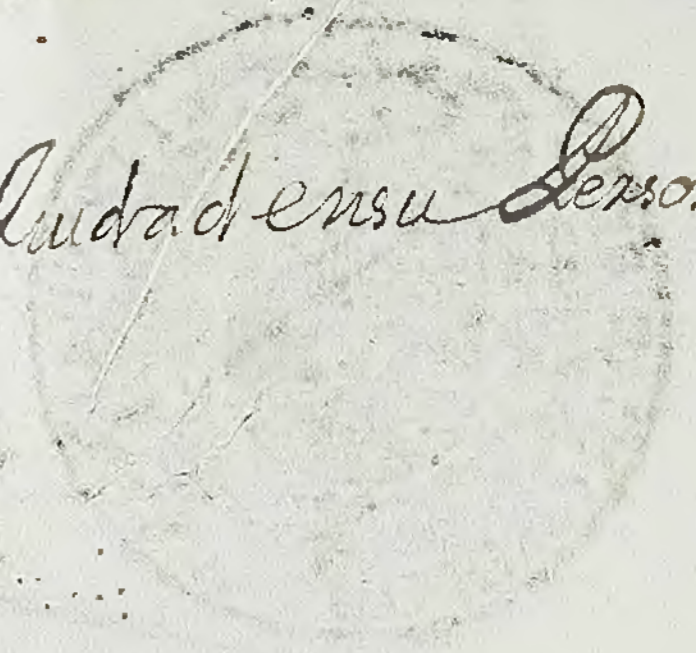 Ciudad ensu Perso